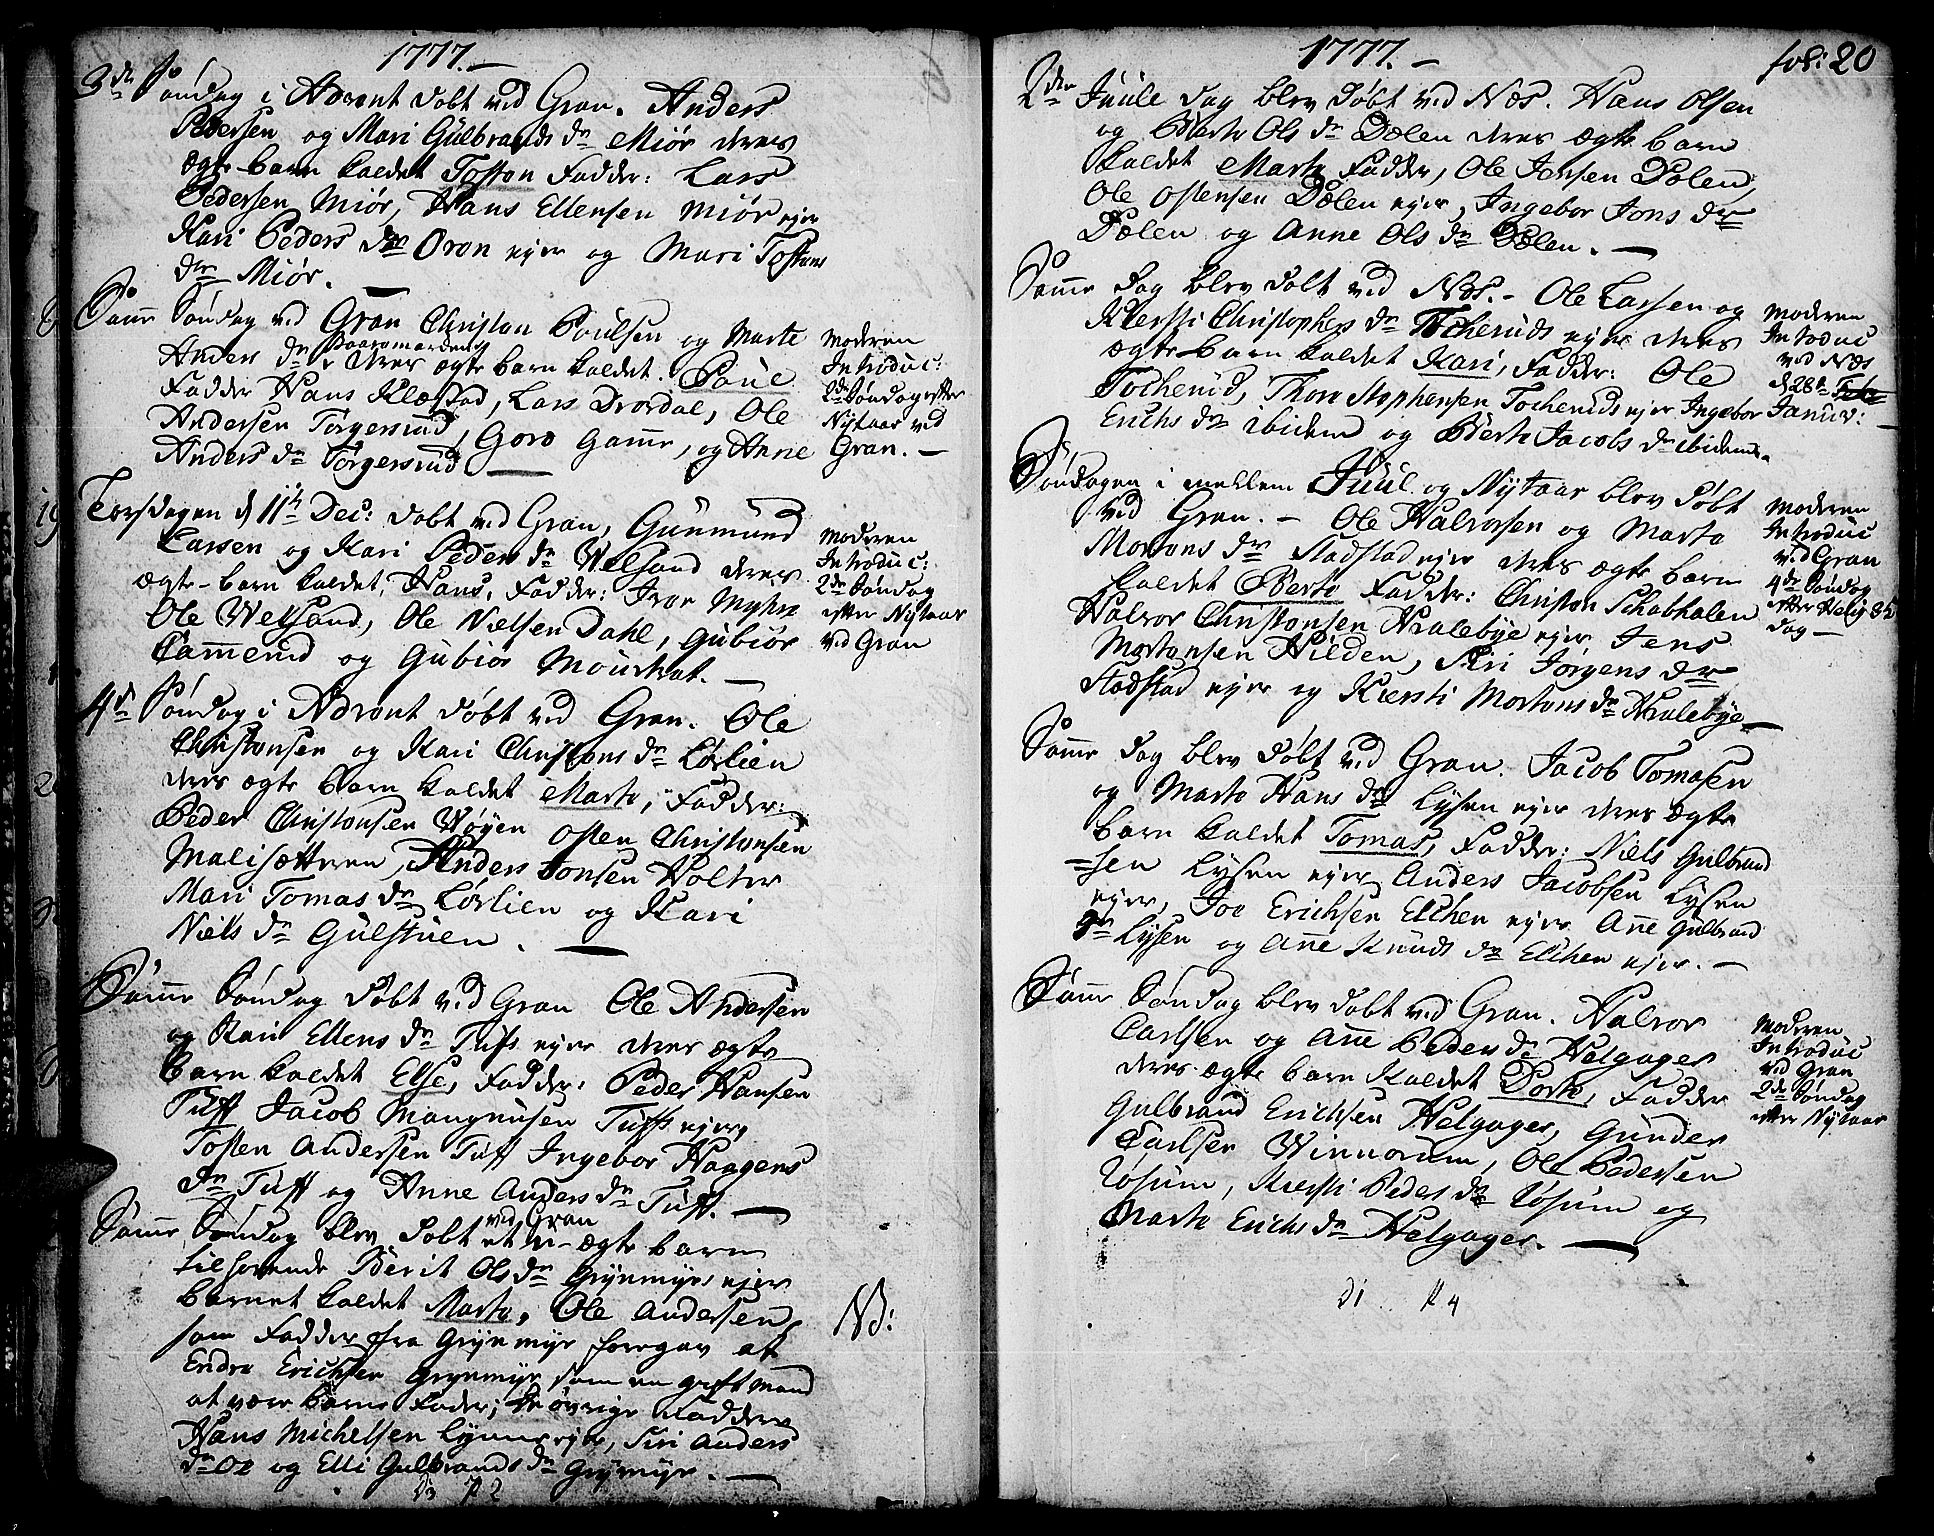 1777.
3de Søndag i Advent døbt ved Gran. Anders
Pedersen og Mari Gülbrands dr Miør deres
ægte barn kaldet Tosten Fadder: Lars
Pedersen Miør, Hans Ellensen Miør ejer
Kari Peders dr Oren ejer og Mari Tostens
dr Miør.
Samme Søndag ved Gran Christen Poulsen og Marte
Anders dr deres ægte barn kaldet. Poul
Fadder Hans Klæstad, Lars Drørdal, Ole
Andersen Torgersrud, Goro Gamme, og Anne
Anders dr Torgersrud
Moderen
Introduc:
2de Søndag efter
Nytaar ved
Gran.
Torsdagen d 11te Dec: døbt ved Gran, Gunmund
Larsen og Kari Peders dr Welsand deres
ægte-barn kaldet, Hans, Fadder: Iver Myhre
Ole Welsand, Ole Nielsen Dahl, Gubiør
Cammerud og Gubiør
Moderen
Introduc:
2de Søndag
efter Nytaar
ved Gran
4de Søndag i Advent døbt ved Gran. Ole
Christensen og Kari Christens dr Lørlien
deres ægte barn kaldet Marte, Fadder:
Peder Christensen Wøyen Osten Christensen
Malisætteren, Anders Jonsen Holter
Mari Tomas dr Lørlien og Kari
Niels dr Gulstuen.
Samme Søndag døbt ved Gran Ole Andersen
og Kari Ellens dr Tufft ejer deres ægte
barn kaldet Else, Fadder: Peder Hansen
Tufft Jacob Mangnusen Tufft ejer,
Tosten Andersen Tufft Ingebor Haagens
dr Tufft og Anne Anders dr Tufft.
Samme Søndag blev døbt ved Gran et u-ægte barn
tilhørende Berit Ols dr Grynmyr ejer
barnet kaldet Marte, Ole Andersen,
som Fadder fra Grynmyr foregav at
Endre Erichsen Grynmyr som en gift mand
at være barns Fader; de øvrige Faddere
Hans Michelsen Lynne ejer, Siri Anders
dr Oe og Elli Gulbrands dr Grynmyr.
NB:
1777.
fol: 20
2den Juule dag blev døbt ved Næs. Hans Olsen
og Berte Ols dr Dælen deres ægte barn
kaldet Marte Fadder, Ole Jensen Dolen,
Ole Ostensen Dælen ejer, Ingebor Jons dr
Dælen og Anne Ols dr Dælen.
Samme dag blev døbt ved Næs. Ole Larsen og
Kiersti Christophers dr Tocherud ejer deres
ægte-barn kaldet Kari, Fadder: Ole
Tocherud, Thore Stephensen Tocherud ejer Ingebor
Erichs dr ibidem og Berte Jacobs dr ibidem.
Moderen
Introduc
ved Næs
d 28te
Januar:
Søndagen i mellem Juul og Nytaar blev døbt
ved Gran. Ole Halvorsen og Marte
Mortens dr Stadstad ejer deres ægte barn
kaldet Berte Fadder: Christen Schabhalen
Halvor Christensen Hvalebye ejer Jens
Mortensen Hilden, Siri Jørgens dr
Stadstad ejer og Kiersti Mortens dr Hvalebye
Moderen
Introduc
ved Gran
4de Søndag
efter Helig 3k
dag
Samme dag blev døbt ved Gran. Jacob Tomasen
og Marte Hans dr Lysen ejer deres ægte
barn kaldet Tomas, Fadder: Niels Gulbrand
=sen Lysen ejer Anders Jacobsen Lysen
ejer, Joe Erichsen Elchen ejer Anne Gulbrand
dr Lysen og Anne Knuds dr Elchen ejer.
Samme Søndag blev døbt ved Gran. Halvor
Carlsen og Anne Peders dr Helgager
deres ægte barn kaldet Dorte, Fadder
Gulbrand Erichsen Helgager, Gunder
Carlsen Winnorum, Ole Pedersen
Løsum, Kiersti Peders dr Løsum og
Marte Erichs dr Helgager.
Moderen
Introduc
ved Gran
2de Søndag
efter Nytaar